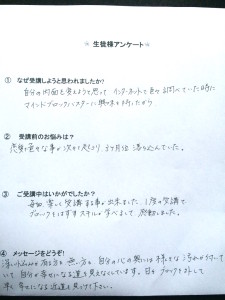 ☆ 生徒様アンケート☆
① なぜ受講しようと思われましたか?
自分の内面を変えようと思って インターネットで色々調べていた時に
マインドブロックバスターに興味を持ったから
② 受講前のお悩みは?
悪い事が次々と起こり、
③ ご受講中はいかがでしたか?
毎回 楽しく受講する事が出来ました。1度の受講で
ブロックをはずすスキルが学べるので、感動しました。
④ メッセージをどうぞ!
深い悩みが有る方も無い方も、自分の心の奥には様々な汚れがくっついて
いて 自分が幸せになる道を見えなくしています。ブロックをはずして
早く幸せになる近道を見つけて下さい。